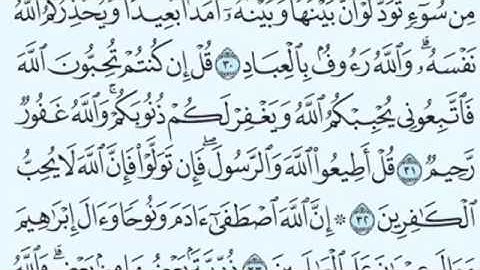 مِن سُوٓءٍ تَوَدُّ لَوْ أَنَّ بَيْنَهَا وَبَيْنَهُۥٓ أَمَدَۢا بَعِيدًا ۗ وَيُحَذِّرُكُمُ ٱللَّهُ
نَفْسَهُۥ ۗ وَٱللَّهُ رَءُوفُۢ بِٱلْعِبَادِ ٣٠ قُلْ إِن كُنتُمْ تُحِبُّونَ ٱللَّهَ
فَٱتَّبِعُونِى يُحْبِبْكُمُ ٱللَّهُ وَيَغْفِرْ لَكُمْ ذُنُوبَكُمْ ۗ وَٱللَّهُ غَفُورٌ
رَّحِيمٌ ٣١ قُلْ أَطِيعُوا۟ ٱللَّهَ وَٱلرَّسُولَ ۖ فَإِن تَوَلَّوْا۟ فَإِنَّ ٱللَّهَ لَا يُحِبُّ
ٱلْكَـٰفِرِينَ ٣٢ ۞ إِنَّ ٱللَّهَ ٱصْطَفَىٰٓ ءَادَمَ وَنُوحًا وَءَالَ إِبْرَٰهِيمَ
وَءَالَ عِمْرَٰنَ عَلَى ٱلْعَـٰلَمِينَ ٣٣ ذُرِّيَّةَۢ بَعْضُهَا مِنۢ بَعْضٍ ۗ وَٱللَّهُ